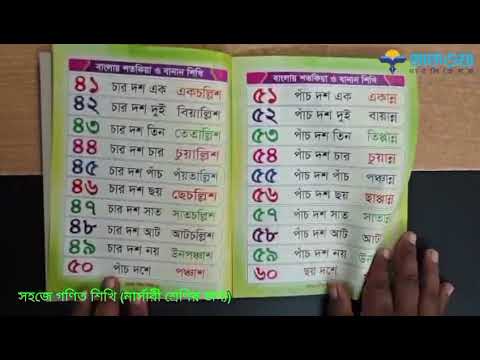 বাংলায় শতকিয়া ও বানান শিখি
৪১ চার দশ এক একচল্লিশ
৪২ চার দশ দুই বিয়াল্লিশ
৪৩ চার দশ তিন তেতাল্লিশ
৪৪ চার দশ চার চুয়াল্লিশ
৪৫ চার দশ পাঁচ পঁয়তাল্লিশ
৪৬ চার দশ ছয় ছেচল্লিশ
৪৭ চার দশ সাত সাতচল্লিশ
৪৮ চার দশ আট আটচল্লিশ
৪৯ চার দশ নয় উনপঞ্চাশ
৫০ পাঁচ দশে পঞ্চাশ
বাংলায় শতকিয়া ও বানান শিখি
৫১ পাঁচ দশ এক একান্ন
৫২ পাঁচ দশ দুই বায়ান্ন
৫৩ পাঁচ দশ তিন তিপ্পান্ন
৫৪ পাঁচ দশ চার চুয়ান্ন
৫৫ পাঁচ দশ পাঁচ পঞ্চান্ন
৫৬ পাঁচ দশ ছয় ছাপ্পান্ন
৫৭ পাঁচ দশ সাত
৫৮ পাঁচ দশ আট
৫৯ পাঁচ দশ নয়
৬০ ছয় দশে
সহজে গণিত শিখি (নার্সারী শ্রেণির জন্য)